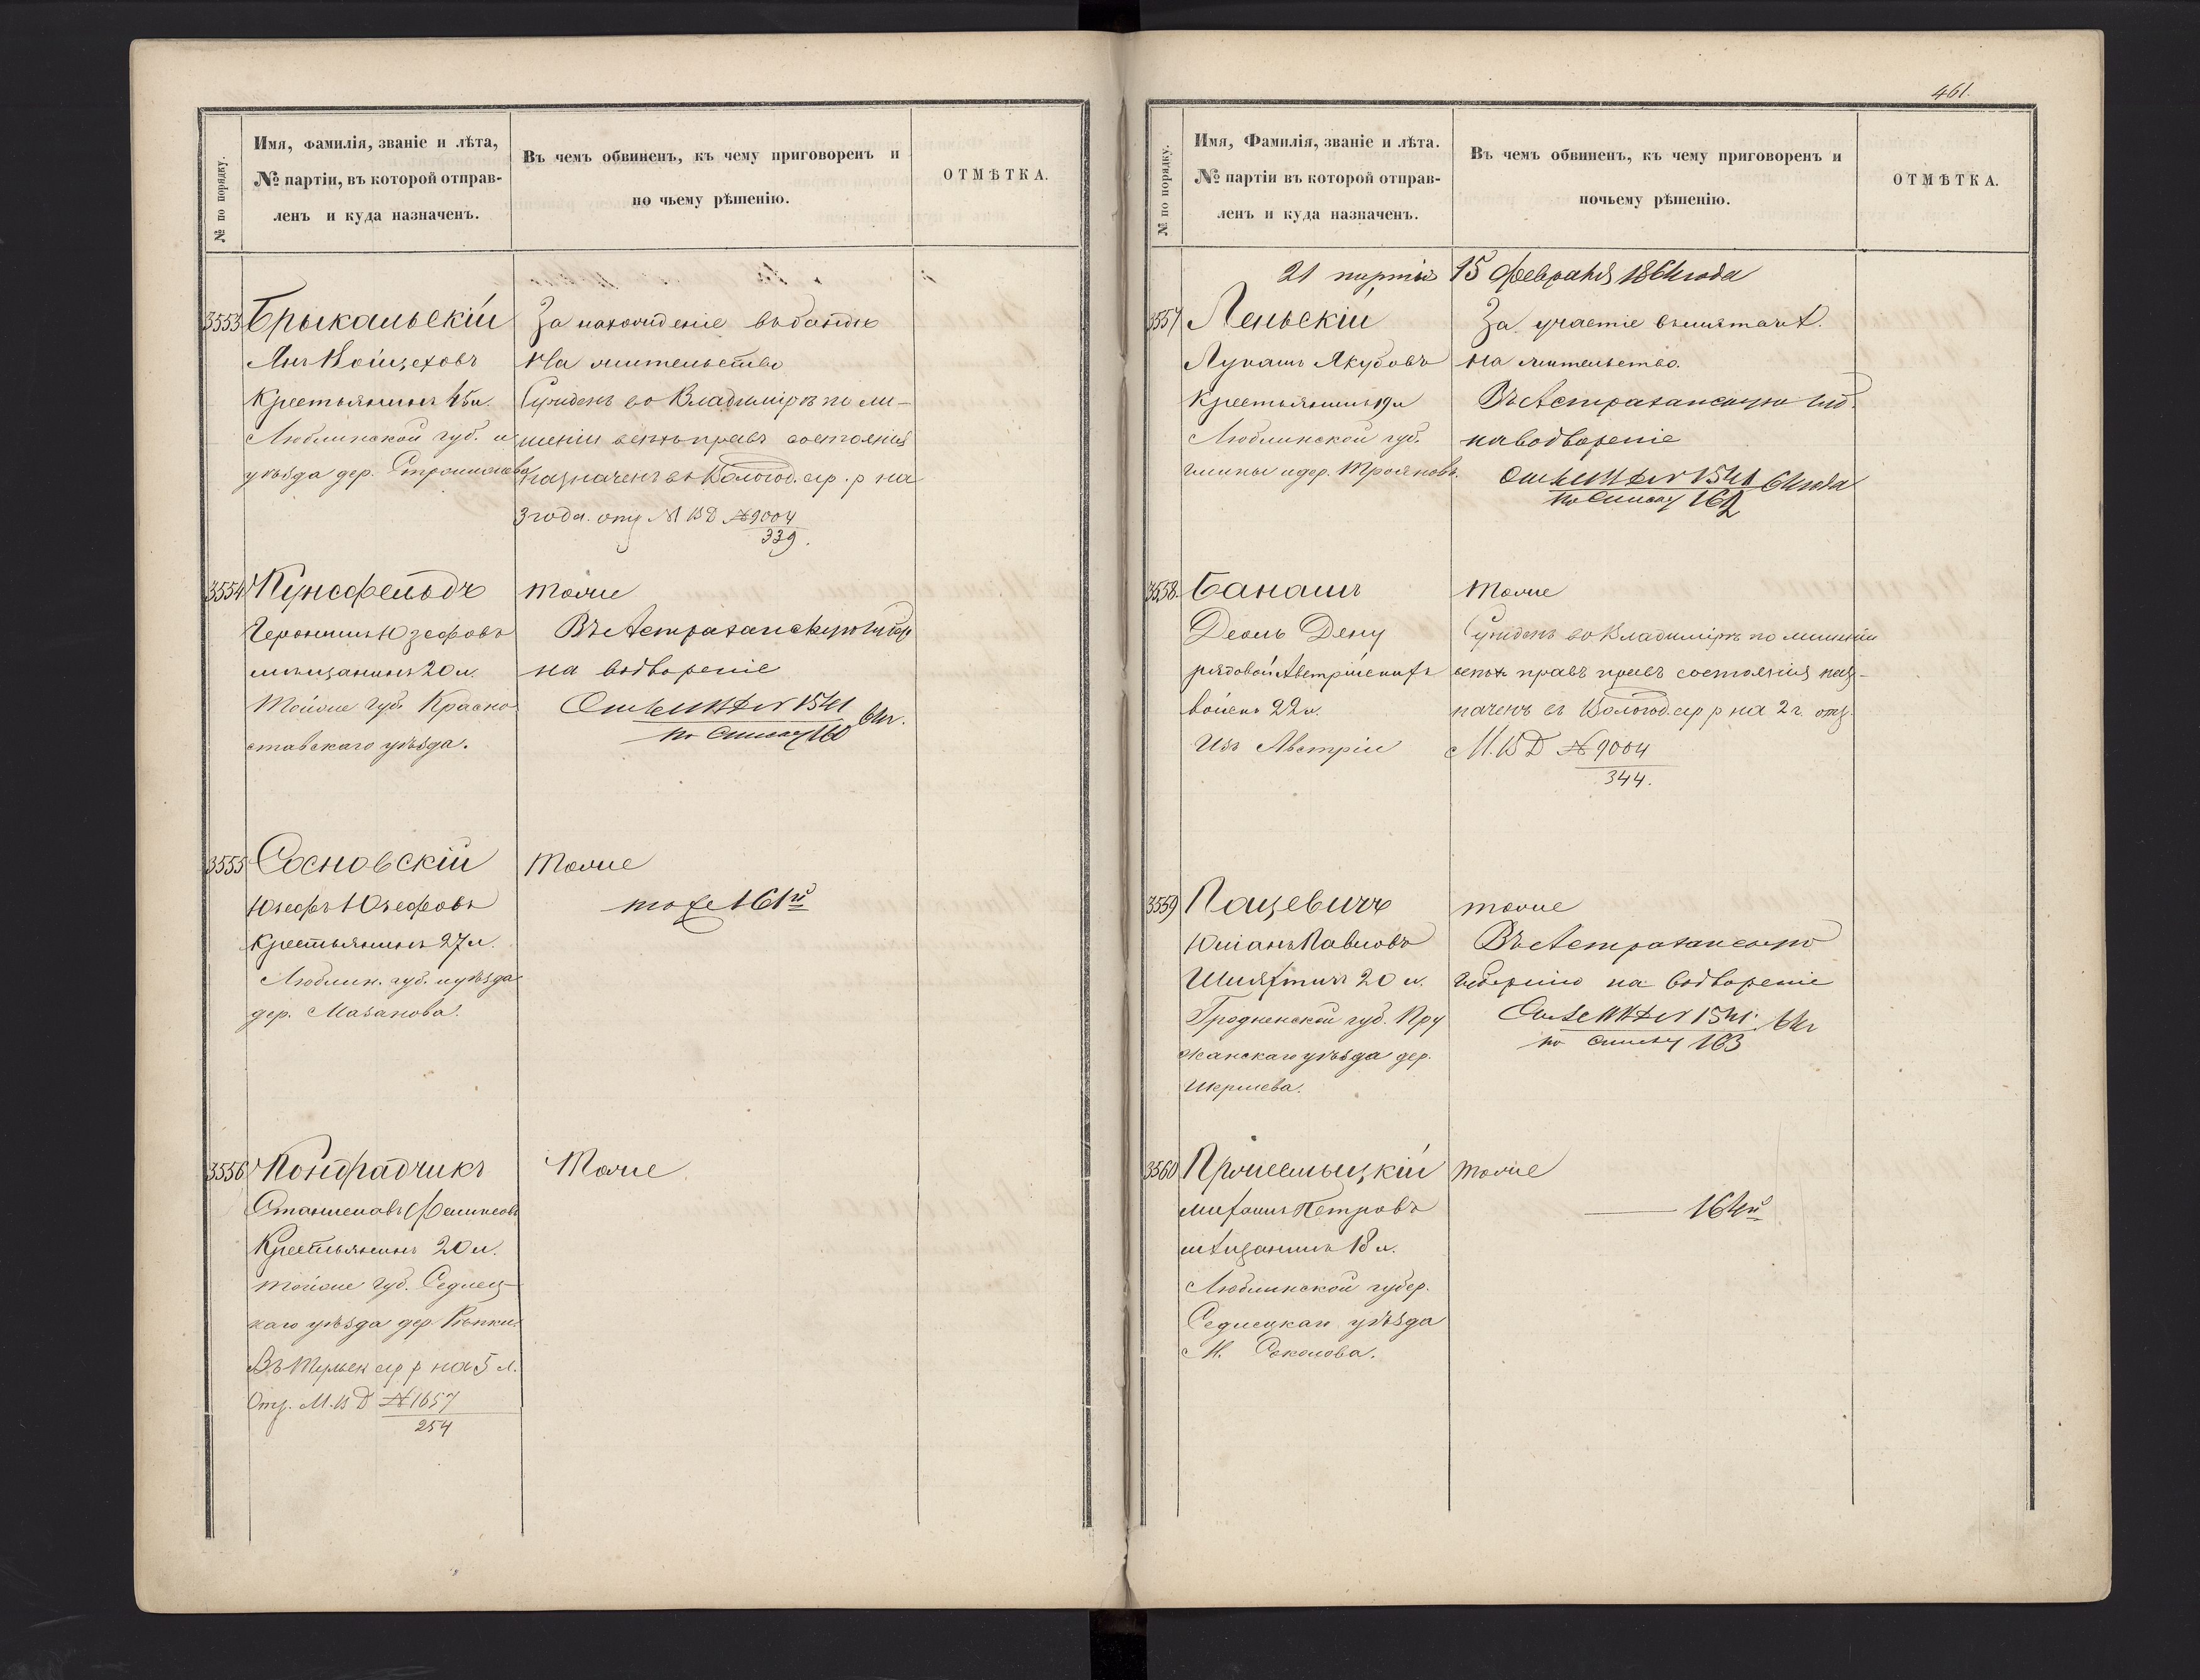 461.
№ по порядку.
Имя, Фамилія, званіе и лѣта,
№ партіи, въ которой отправ-
ленъ и куда назначенъ.
Въ чемъ обвиненъ, къ чему приговоренъ и
по чьему рѣшенію.
ОТМѢТКА.
3553
Брыкальскій
Янъ Войцеховъ
Крестьянинъ 45 л.
Люблинской губ. и
уѣзда дер.
За нахожденіе въ бандѣ
На жительство
Сужденъ во Владимірѣ по ли-
шеніи всѣхъ правъ состоянія
назначенъ въ Вологод. ар. р на
3 года. отз М В Д №9004
339.
3554
Кунсфельдъ
Геронимъ Юзефовъ
мѣщанинъ 20 л.
Тойже губ. Красно
ставскаго уѣзда.
тоже
Въ Астраханскую губер
на водвореніе
1541 64 г.
по списку 160
3555
Сосновскій
Юзефъ Юзефовъ
Крестьянинъ 27 л.
Люблин. губ. и уѣзда
дер. Мазанова.
Тоже
тоже 161й
3556
Кондрадчикъ
Станиславъ Феликсовъ
Крестьянинъ 20 л.
тойже губ. Седлец-
каго уѣзда дер. Рѣпки.
ар р на 5 л.
Отз. М. В Д №1657
254
Тоже
№ по порядку.
Имя, Фамилія, званіе и лѣта.
№ партіи въ которой отправ-
ленъ и куда назначенъ.
Въ чемъ обвиненъ, къ чему приговоренъ и
почьему рѣшенію.
ОТМѢТКА.
21 партія 15 февраля 1864 года
3557
Леньскій
Лукашъ Якубовъ
Крестьянинъ 19 л
Люблинской губ.
гмины и дер. Трояновъ.
За участіе въ мятежѣ.
На жительство.
Въ Астраханскую губ.
на водвореніе
1541 64 года
по списку 162
3558.
Банашъ
Дену
рядовой Австрійскихъ
войскъ 22 л.
Изъ Австріи
тоже
Сужденъ во Владимірѣ по лишеніи
всѣхъ правъ правъ состоянія наз-
наченъ въ Вологод. ар р на 2 г. отз.
М. В Д №9004
344.
3559
Пацевичъ
Юліанъ Павловъ
Шляхтичъ 20 л.
Гродненской губ. Пру
жанскаго уѣзда дер.
тоже
Въ Астраханскую
губернію на водвореніе
1541. 64 г
по списку 163
3560
Пржесмыцкій
Михаилъ Петровъ
мѣщанинъ 18 л.
Люблинской губер.
Седлецкаго уѣзда
М. Соколова.
тоже
— 164й